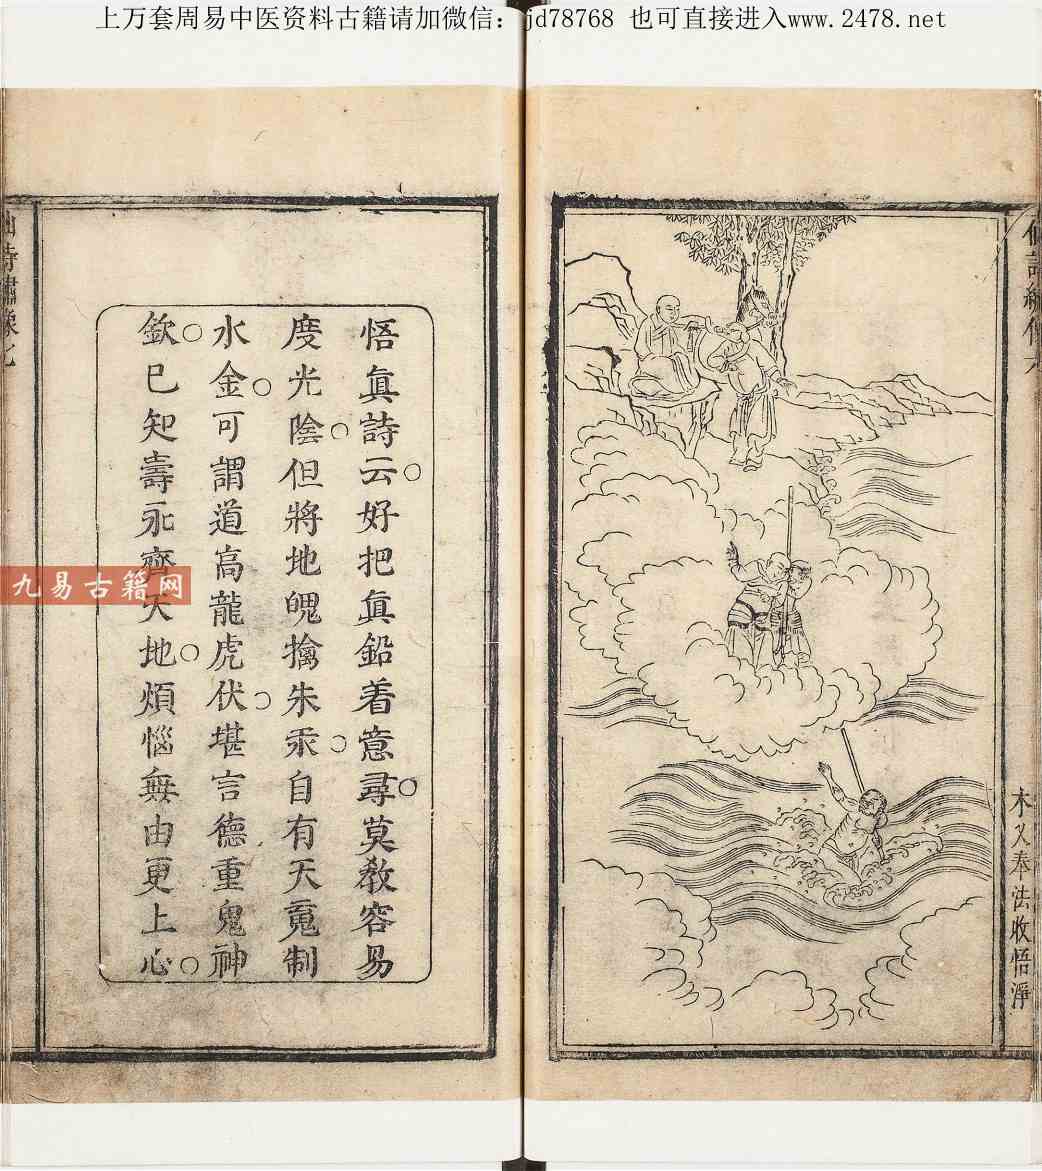 上万套周易中医资料古籍请加微信：jd78768 也可直接进入www.2478.net
木乂奉法收悟淨
悟眞詩云○好把眞鉛着意尋○莫教容易
度光陰○但將地魄擒朱汞○自有天䰟制
水金○可謂道高龍虎伏○堪言德重鬼神
欽○巳知壽永齊天地○煩惱無由更上心○
九易古籍网